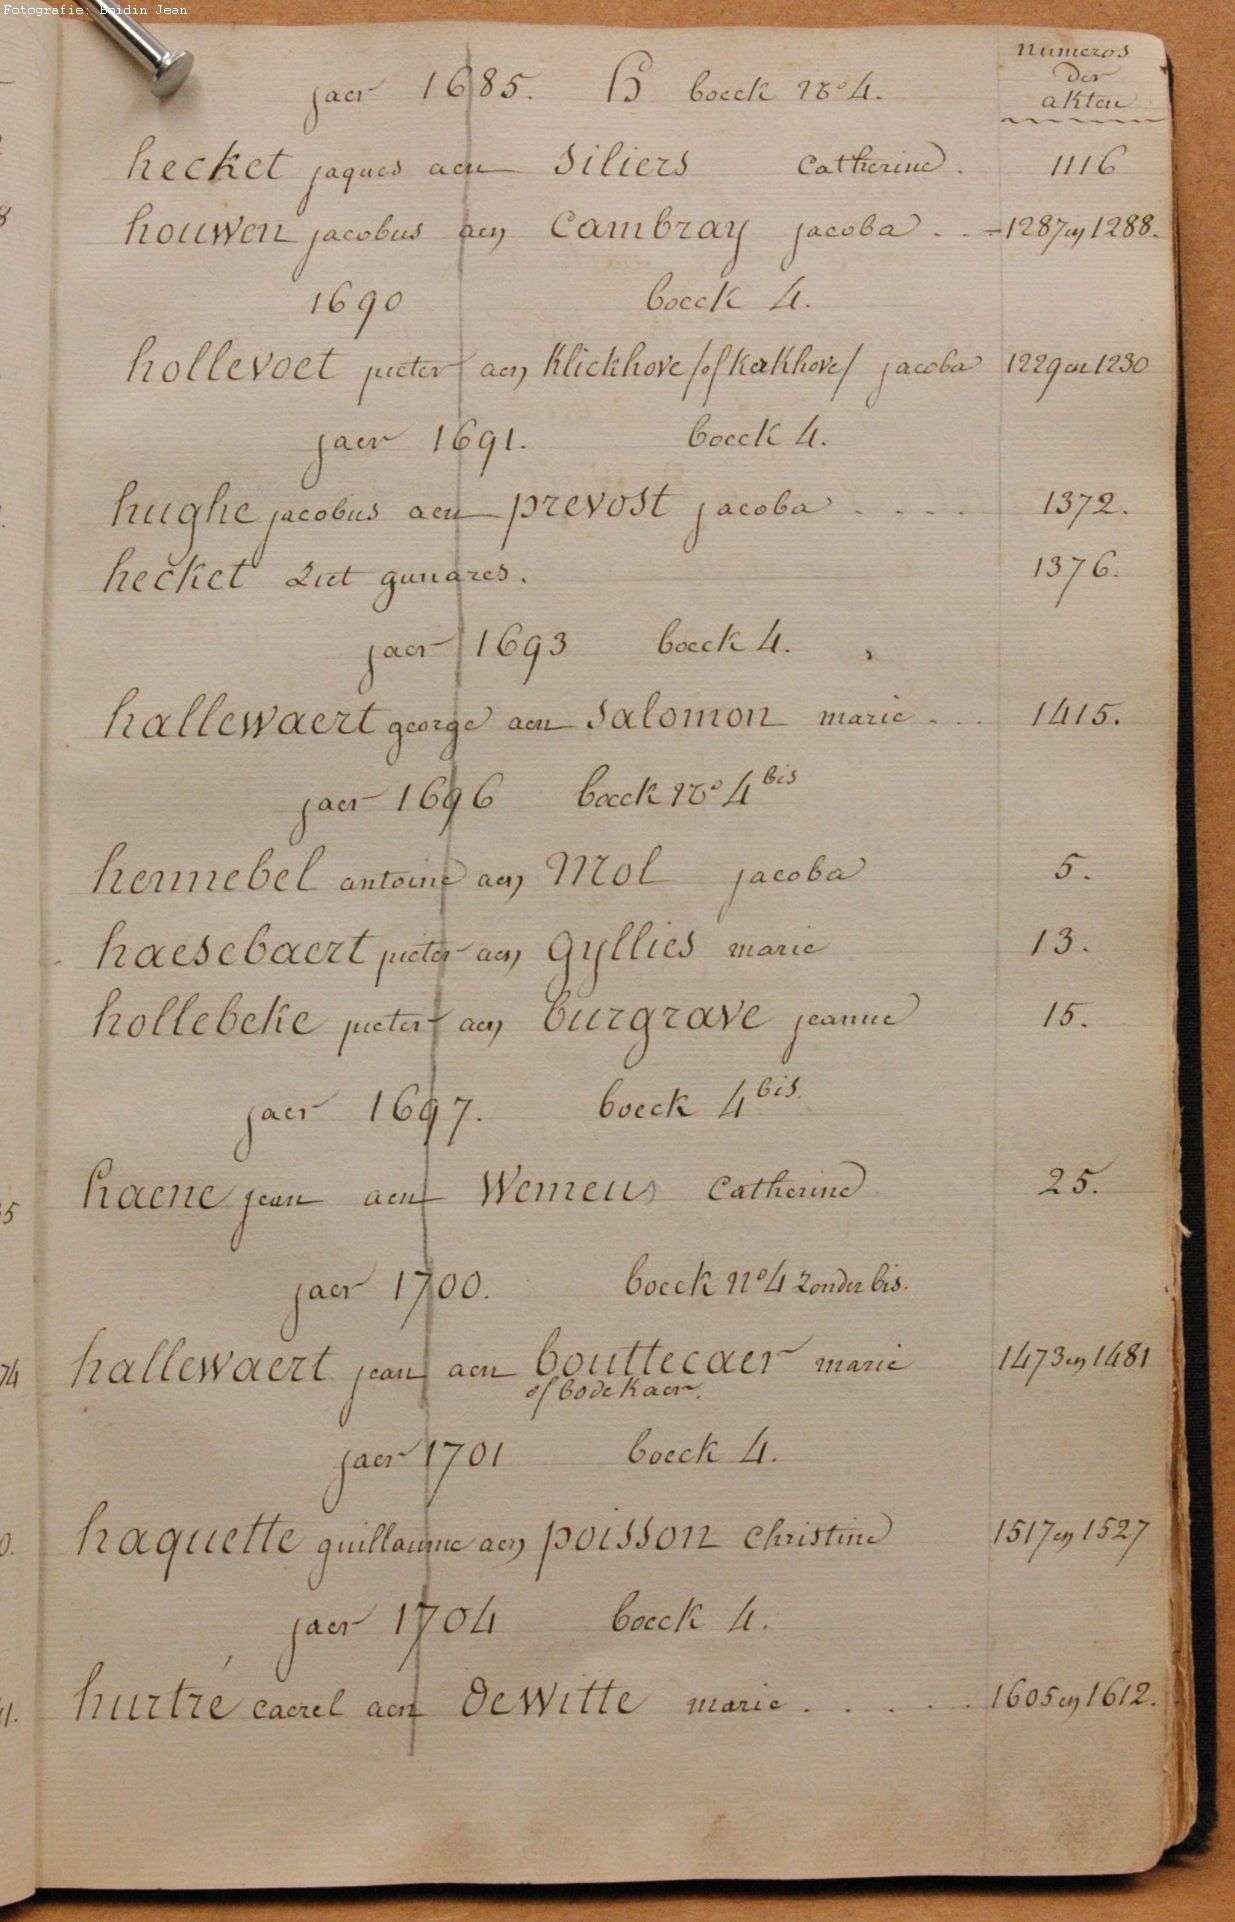 Fotografie: Boidin Jean
numeros
der
akten
jaer 1685. H boeck No 4.
hecket jaques aen siliers Catherine. 1116
houwen jacobus aen Cambray jacoba . . - 1287 en 1288.
1690 boeck 4.
hollevoet pieter aen Klickhove /of Kerkhove/ jacoba 1229 en 1230
jaer 1691. boeck 4.
hughe jacobus aen prevost jacoba . . . . 1372.
hecket 1376.
jaer 1693 boeck 4.
hallewaert george aen Salomon marie . . . 1415.
jaer 1696 boeck No 4 bis
hennebel antoine aen Mol jacoba 5.
haesebaert pieter aen gyllies marie 13.
hollebeke pieter aen burgrave jeanne 15.
jaer 1697. boeck 4 bis.
haene jean aen Wemeus Catherine 25.
jaer 1700. boeck No 4 zonder bis.
hallewaert jean aen bouttecaer marie 1473 en 1481
of bodekaer.
jaer 1701 boeck 4.
haquette guillaume aen poisson Christine 1517 en 1527
jaer 1704 boeck 4.
hurtré caerel aen DeWitte marie . . . . . 1605 en 1612.